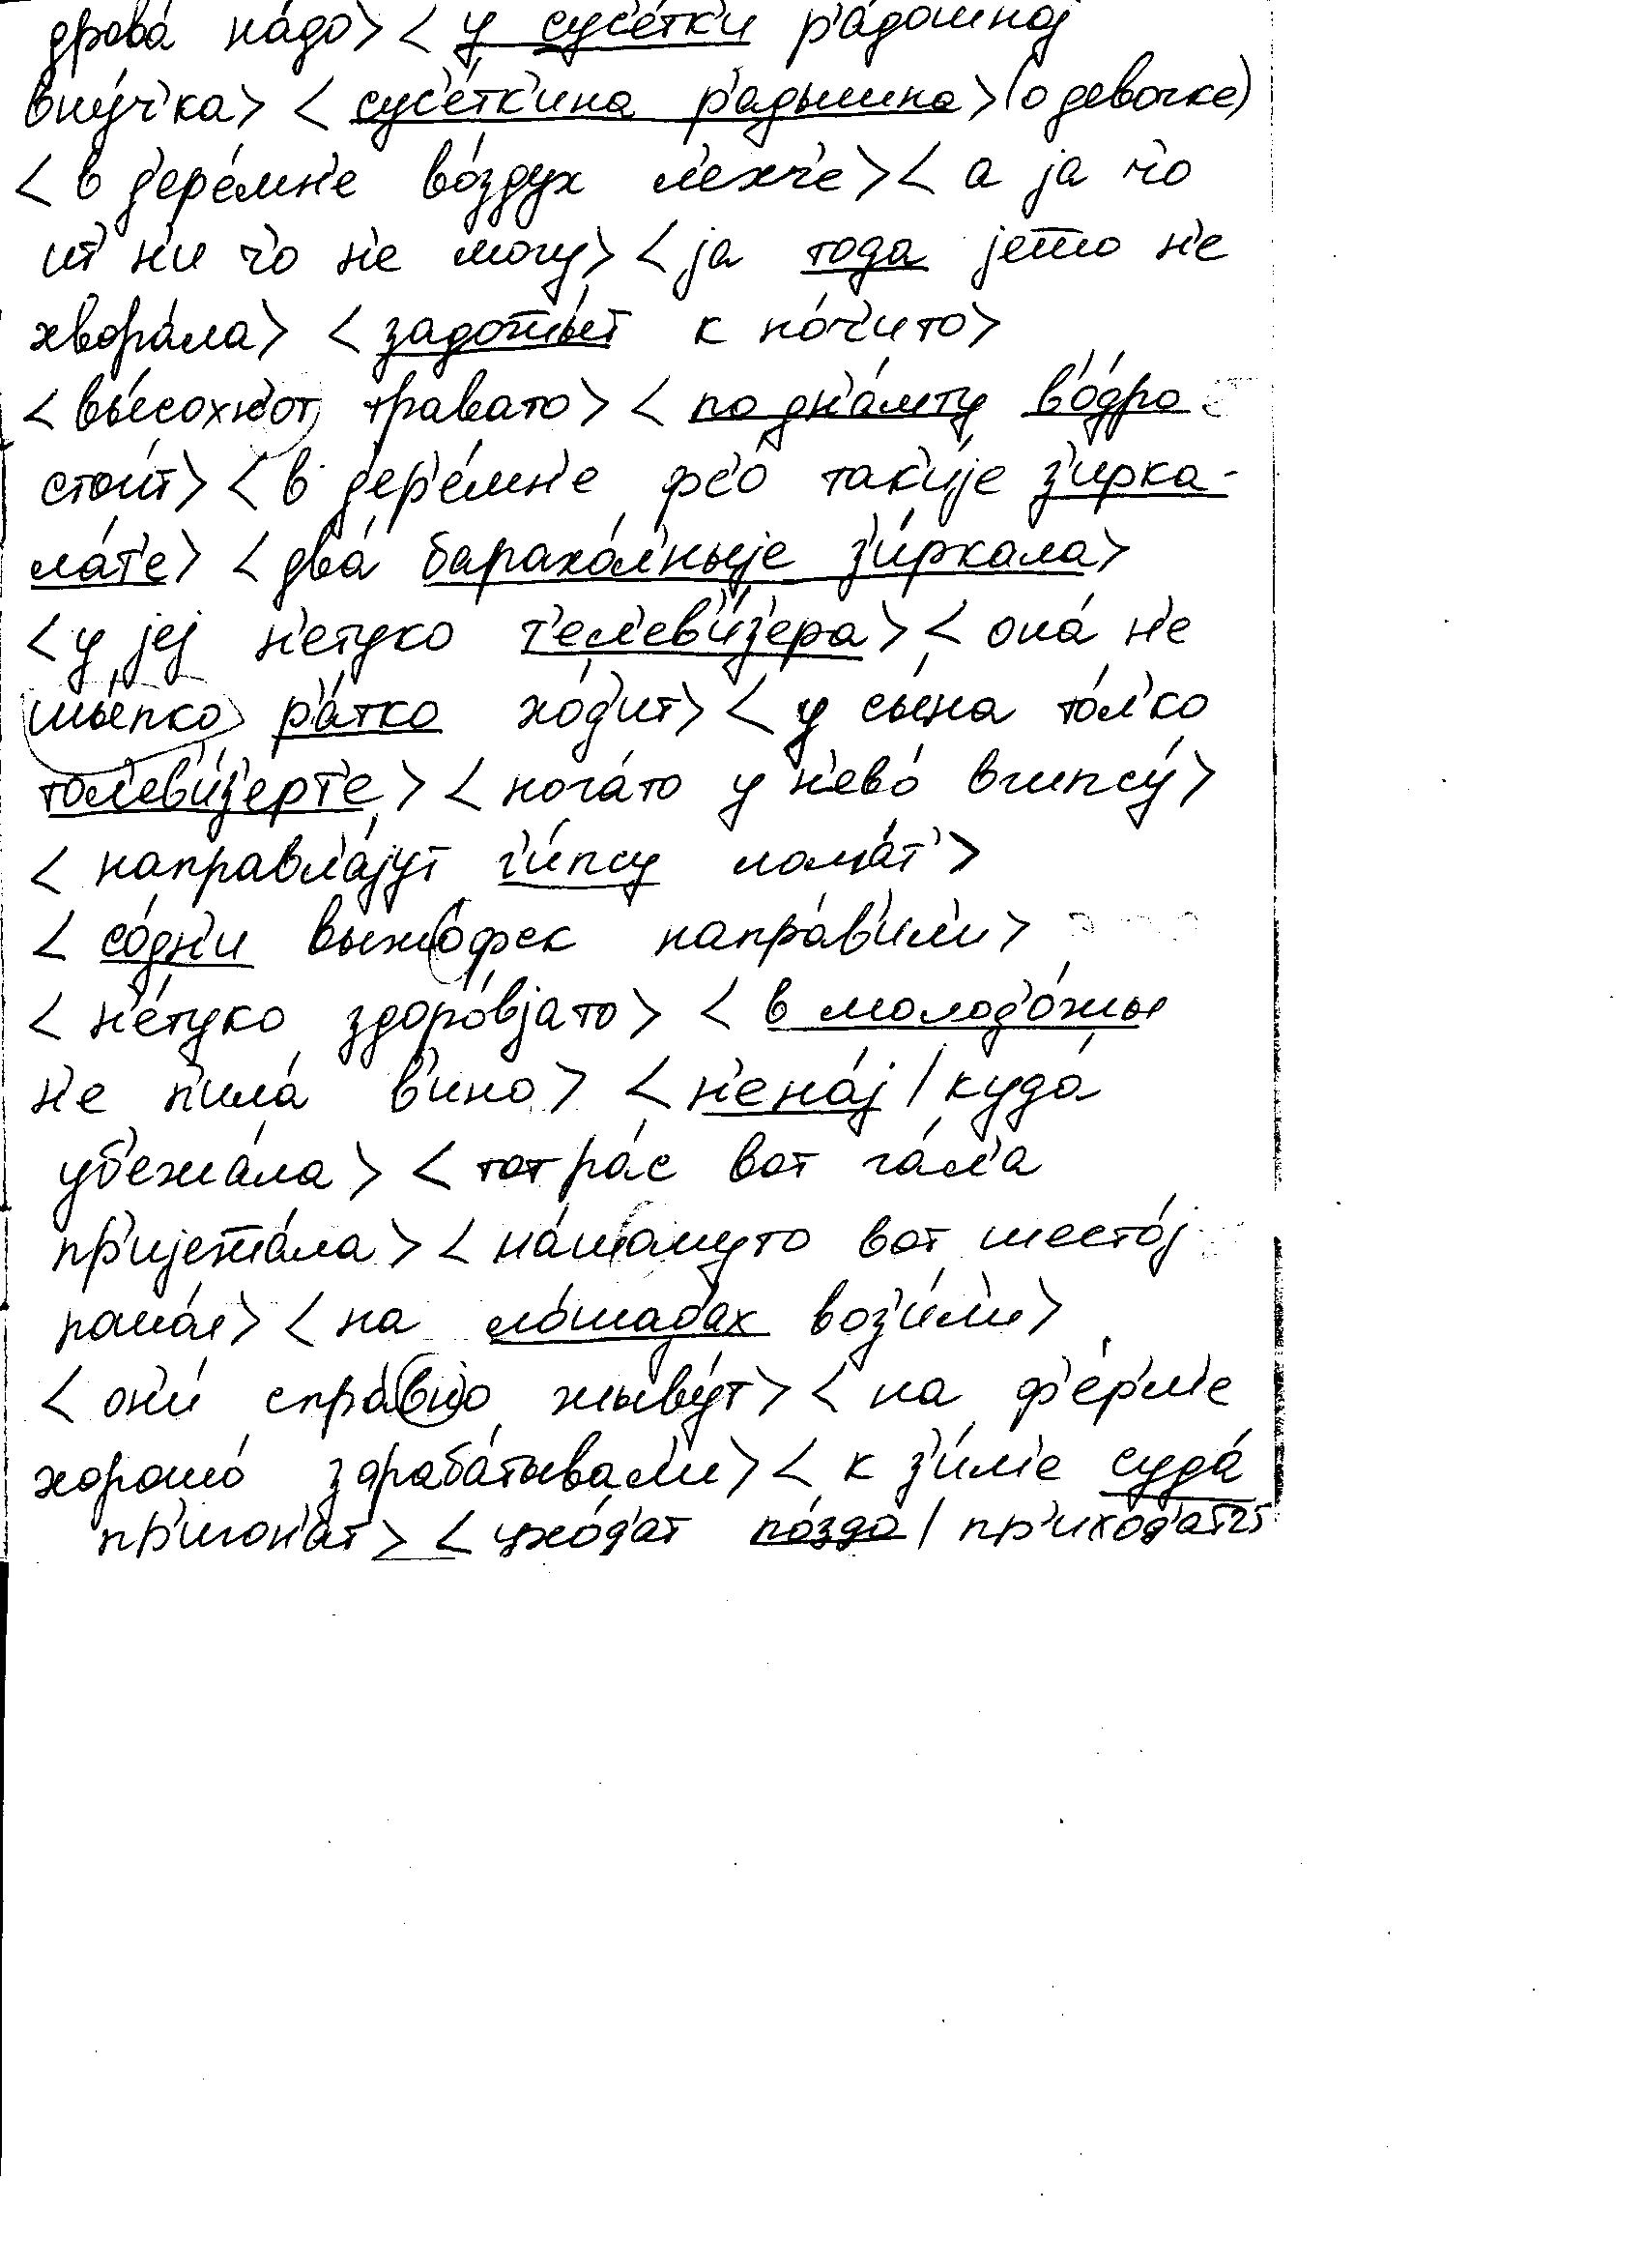 дрова́ на́до> <у сус'е́тк'и р'а́дошној
вну́ч'ка> <сус'е́тк'ина р'адышна> (о девочке)
<в д'ер'е́мн'е во́здух л'ехч'е> <а ја ч'о
ит' н'и ч'о н'е могу> <ја тода јешо н'е
хвора́ла> <задожы́т к но́ч'ито>
<вы́сохн'от травато> <по дн'а́мту в'о́дро
стои́т> <в д'ер'е́мн'е фс'о так'и́је з'ирка-
ла́т'е> <два́ барахо́л'ныје з'и́ркала>
<у јеј н'етуко т'ел'ев'и́з'ера> <она́ н'е
шы́пко р'а́тко хо́д'ит> <у сы́на то́л'ко
тол'ев'и́з'ерт'е> <нога́то у н'ево́ вгипсу́>
<направл'а́јут г'и́псу лома́т'>
<со́дн'и выжофск напра́в'ил'и>
<н'е́туко здоро́вјато> <в молод'о́жы
н'е п'ила́ в'ино> <н'ена́ј / куда́
уб'ежа́ла> <тот ра́с вот га́л'а
пр'ијеша́ла> <на́шомуто вот шесто́ј
пошо́л> <на ло́шадах воз'и́л'и>
<он'и́ спра́вно жыву́т> <на ф'е́рм'е
хорошо́ зараба́тывал'и> <к з'и́м'е суда́
пр'игон'ат> <ухо́д'ат по́здо / пр'ихо́д'ат